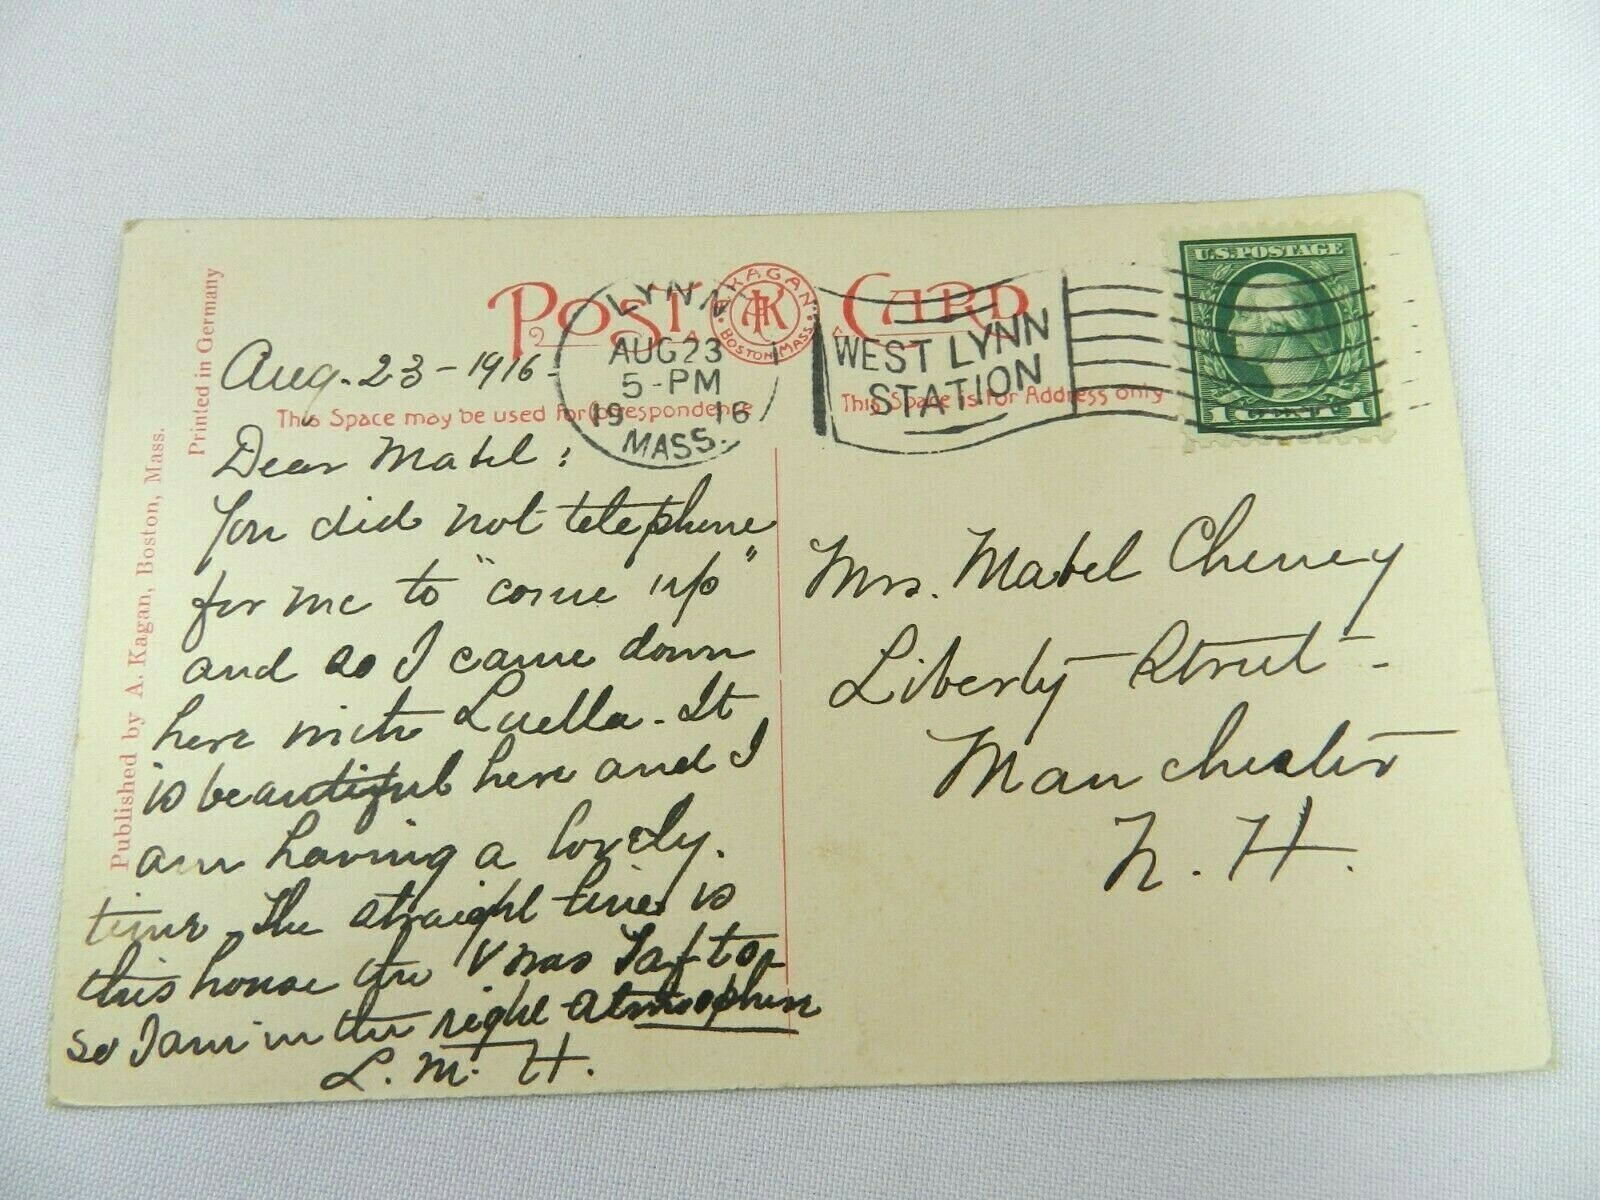 POST CARD
A. KAGAN
AK
BOSTON, MASS.
LYNN
AUG 23
5-PM
1916
MASS.
WEST LYNN
STATION
U.S. POSTAGE
Printed in Germany
Published by A. Kagan, Boston, Mass.
This Space may be used for Correspondence
This Space is for Address only
Aug. 23 - 1916 -
Dear Mabel:
You did not telephone
for me to "come up"
and so I came down
here with Luella - It
is beautiful here and I
am having a lovely
time. The straight time is
this house the
so I am in the right atmosphere
L. M. H.
Mrs. Mabel Cheney
Liberty Street -
Manchester
N. H.